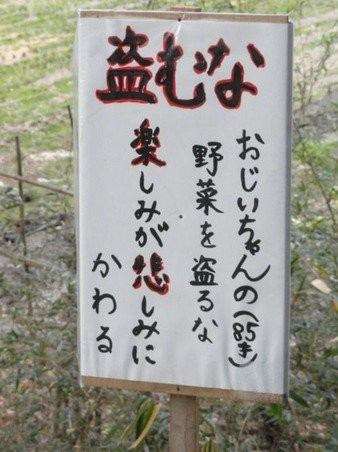 盗むな
おじいちゃんの(85才)
野菜を盗るな
楽しみが悲しみに
かわる